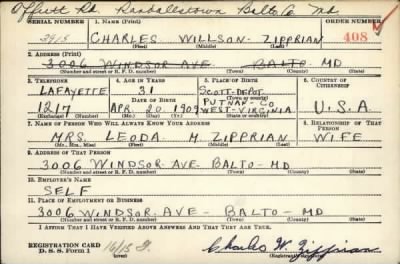 Offutt Rd. Randallstown Balto. Co. Md.
SERIAL NUMBER 1. NAME (Print) ORDER NUMBER
3415 CHARLES WILLSON ZIPPRIAN 408
(First) (Middle) (Last)
2. ADDRESS (Print)
3006 WINDSOR AVE BALTO MD
(Number and street or R. F. D. number) (Town) (County) (State)
3. TELEPHONE 4. AGE IN YEARS 5. PLACE OF BIRTH 6. COUNTRY OF CITIZENSHIP
LAFAYETTE 31 SCOTT-DEPOT
DATE OF BIRTH (Town or county)
1217 APR. 20 1909 PUTNAM-CO WEST-VIRGINIA U.S.A
(Mo.) (Day) (Yr.) (State or country)
7. NAME OF PERSON WHO WILL ALWAYS KNOW YOUR ADDRESS 8. RELATIONSHIP OF THAT PERSON
MRS. LEODA M ZIPPRIAN WIFE
(Mr., Mrs., Miss) (First) (Middle) (Last)
9. ADDRESS OF THAT PERSON
3006 WINDSOR AVE BALTO-MD
(Number and street or R. F. D. number) (Town) (County) (State)
10. EMPLOYER'S NAME
SELF
11. PLACE OF EMPLOYMENT OR BUSINESS
3006 WINDSOR AVE - BALTO - MD
(Number and street or R. F. D. number) (Town) (County) (State)
I AFFIRM THAT I HAVE VERIFIED ABOVE ANSWERS AND THAT THEY ARE TRUE.
REGISTRATION CARD
D. S. S. Form 1 Charles W. Zipprian
(Registrant's signature)